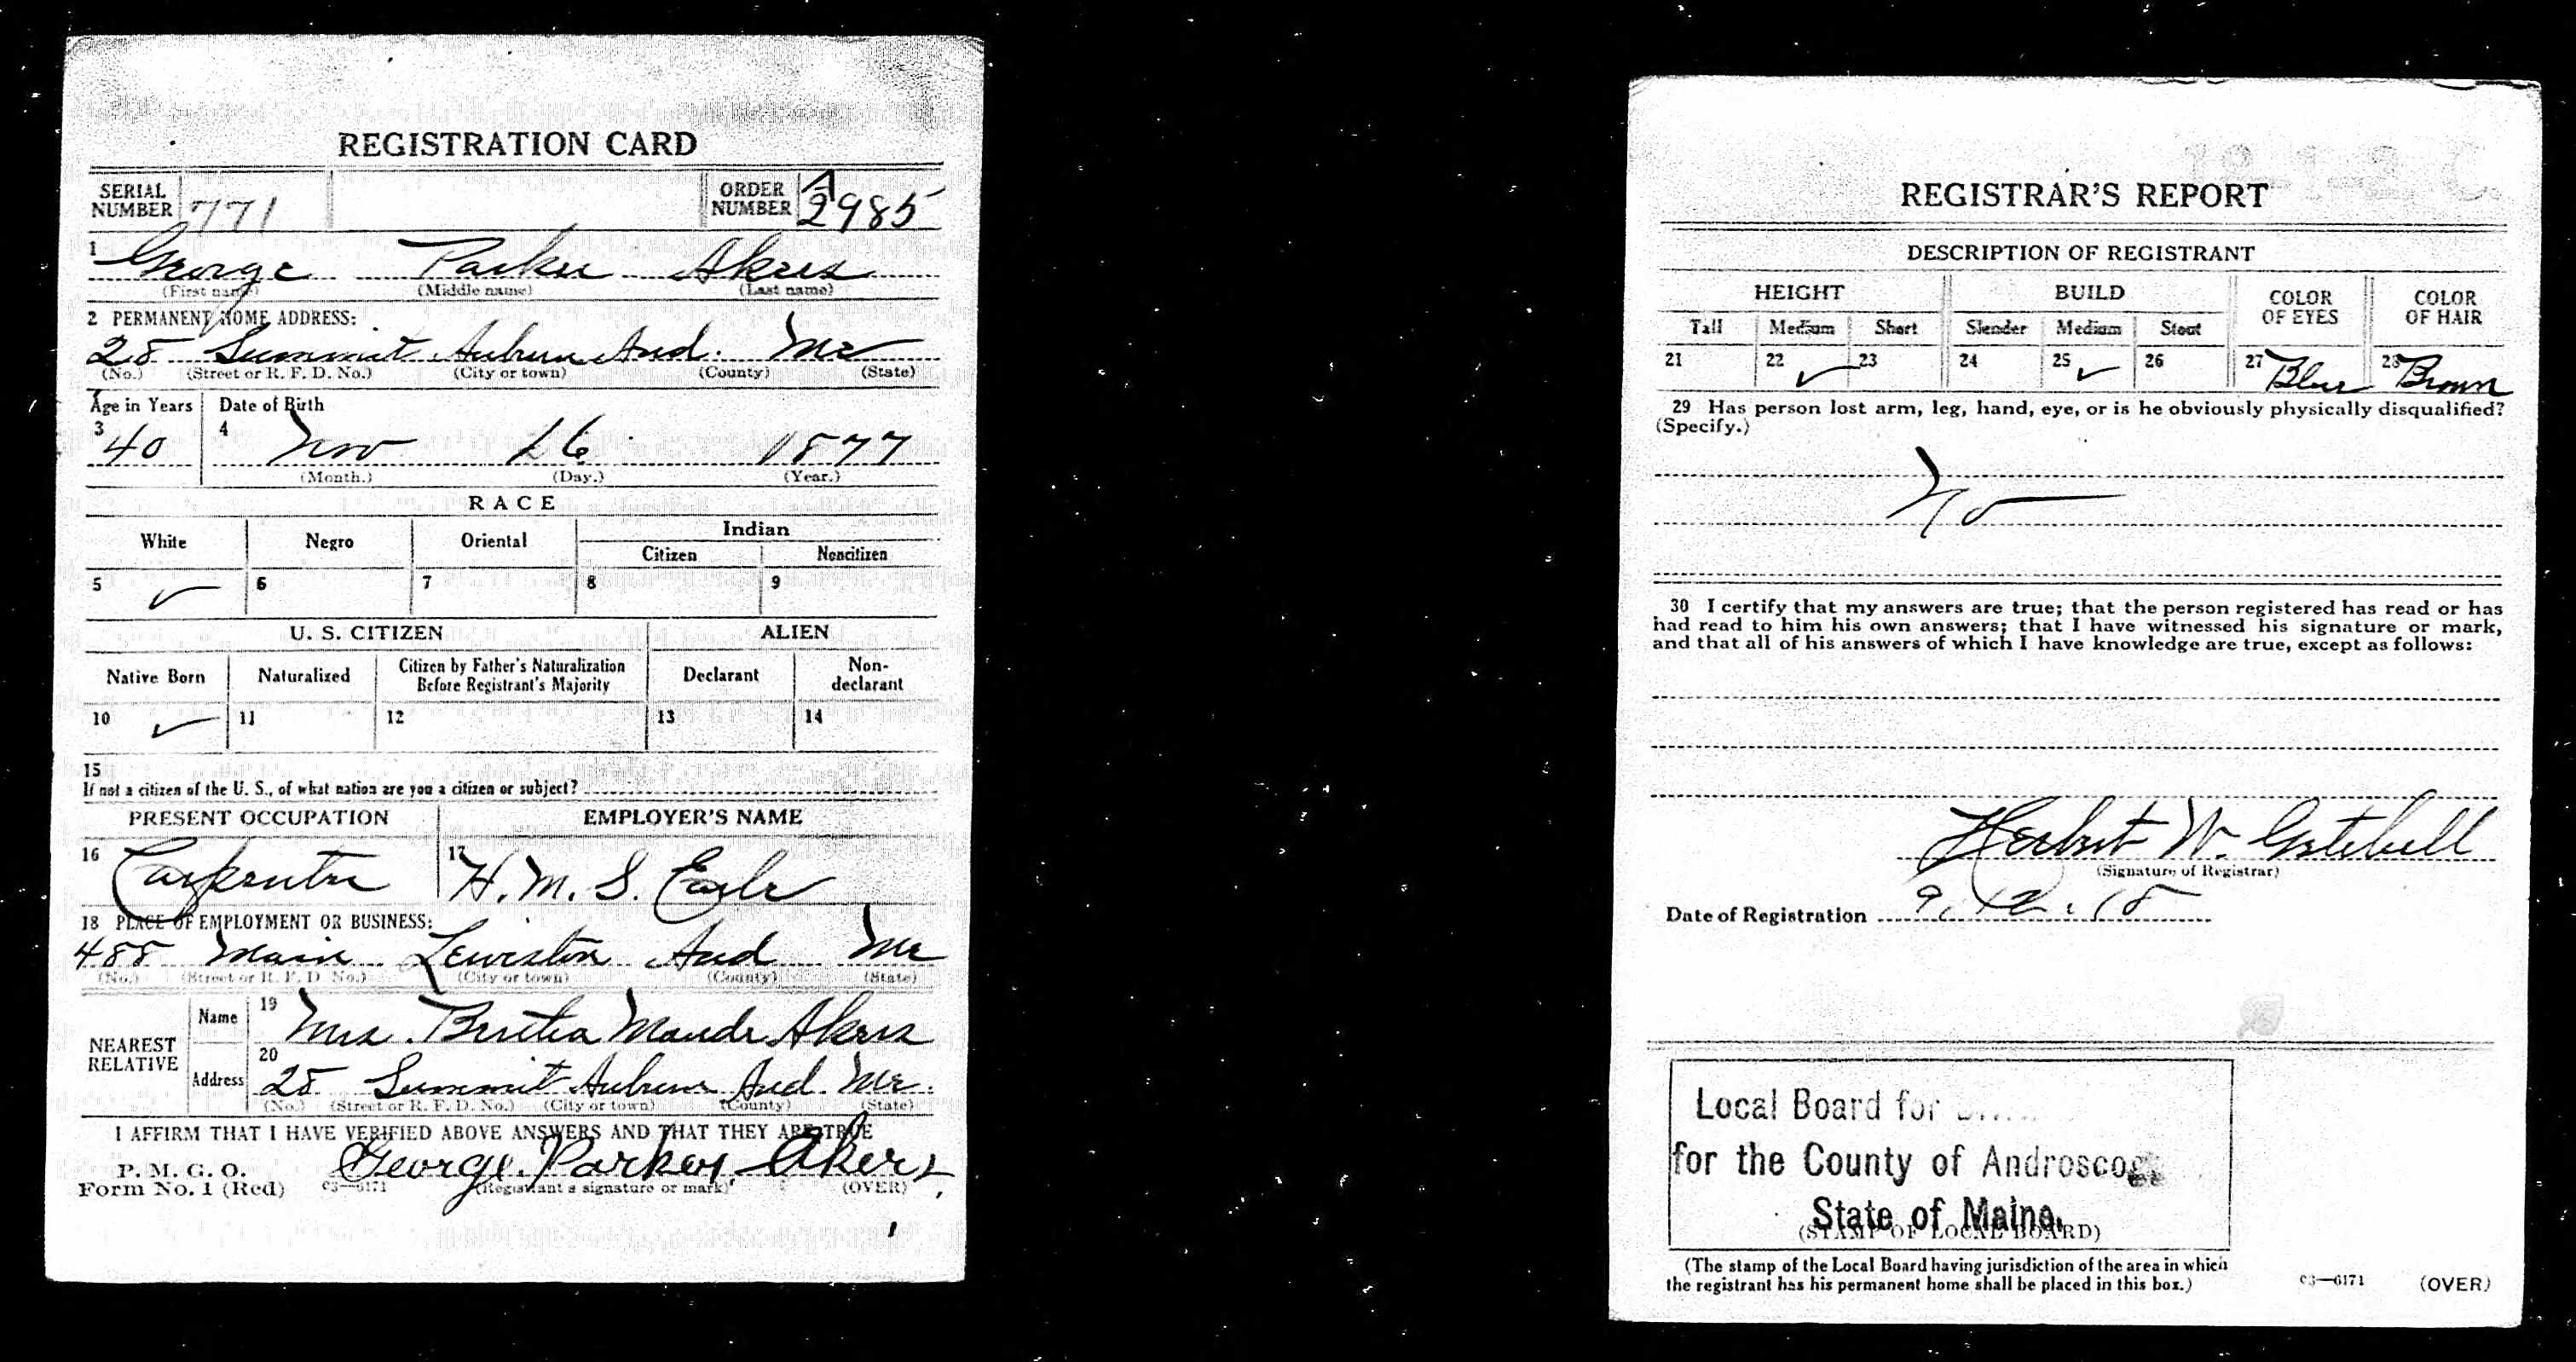 REGISTRATION CARD
SERIAL NUMBER 771 ORDER NUMBER A 2985
1 George Parker Akers
(First name) (Middle name) (Last name)
2 PERMANENT HOME ADDRESS:
28 Summit Auburn And. Me
(No.) (Street or R. F. D. No.) (City or town) (County) (State)
Age in Years Date of Birth
3 40 4 Nov 26 1877
(Month.) (Day.) (Year.)
RACE
White Negro Oriental Indian
Citizen Noncitizen
5 ✓ 6 7 8 9
U. S. CITIZEN ALIEN
Native Born Naturalized Citizen by Father's Naturalization Before Registrant's Majority Declarant Non-declarant
10 ✓ 11 12 13 14
15
If not a citizen of the U. S., of what nation are you a citizen or subject?
PRESENT OCCUPATION EMPLOYER'S NAME
16 Carpenter 17 H. M. S. Earle
18 PLACE OF EMPLOYMENT OR BUSINESS:
488 Main Lewiston And Me
(No.) (Street or R. F. D. No.) (City or town) (County) (State)
NEAREST RELATIVE
Name 19 Mrs. Bertha Maude Akers
Address 20 28 Summit Auburn And. Me.
(No.) (Street or R. F. D. No.) (City or town) (County) (State)
I AFFIRM THAT I HAVE VERIFIED ABOVE ANSWERS AND THAT THEY ARE TRUE
P. M. G. O.
Form No. 1 (Red) 03—6171 George Parker Akers
(Registrant's signature or mark) (OVER)
REGISTRAR'S REPORT
DESCRIPTION OF REGISTRANT
HEIGHT BUILD COLOR OF EYES COLOR OF HAIR
Tall Medium Short Slender Medium Stout
21 22 ✓ 23 24 25 ✓ 26 27 Blue 28 Brown
29 Has person lost arm, leg, hand, eye, or is he obviously physically disqualified?
(Specify.)
No
30 I certify that my answers are true; that the person registered has read or has
had read to him his own answers; that I have witnessed his signature or mark,
and that all of his answers of which I have knowledge are true, except as follows:
Herbert W. Getchell
(Signature of Registrar)
Date of Registration 9.12.18
Local Board for
for the County of
State of Maine.
(STAMP OF LOCAL BOARD)
(The stamp of the Local Board having jurisdiction of the area in which
the registrant has his permanent home shall be placed in this box.)
03—6171 (OVER)